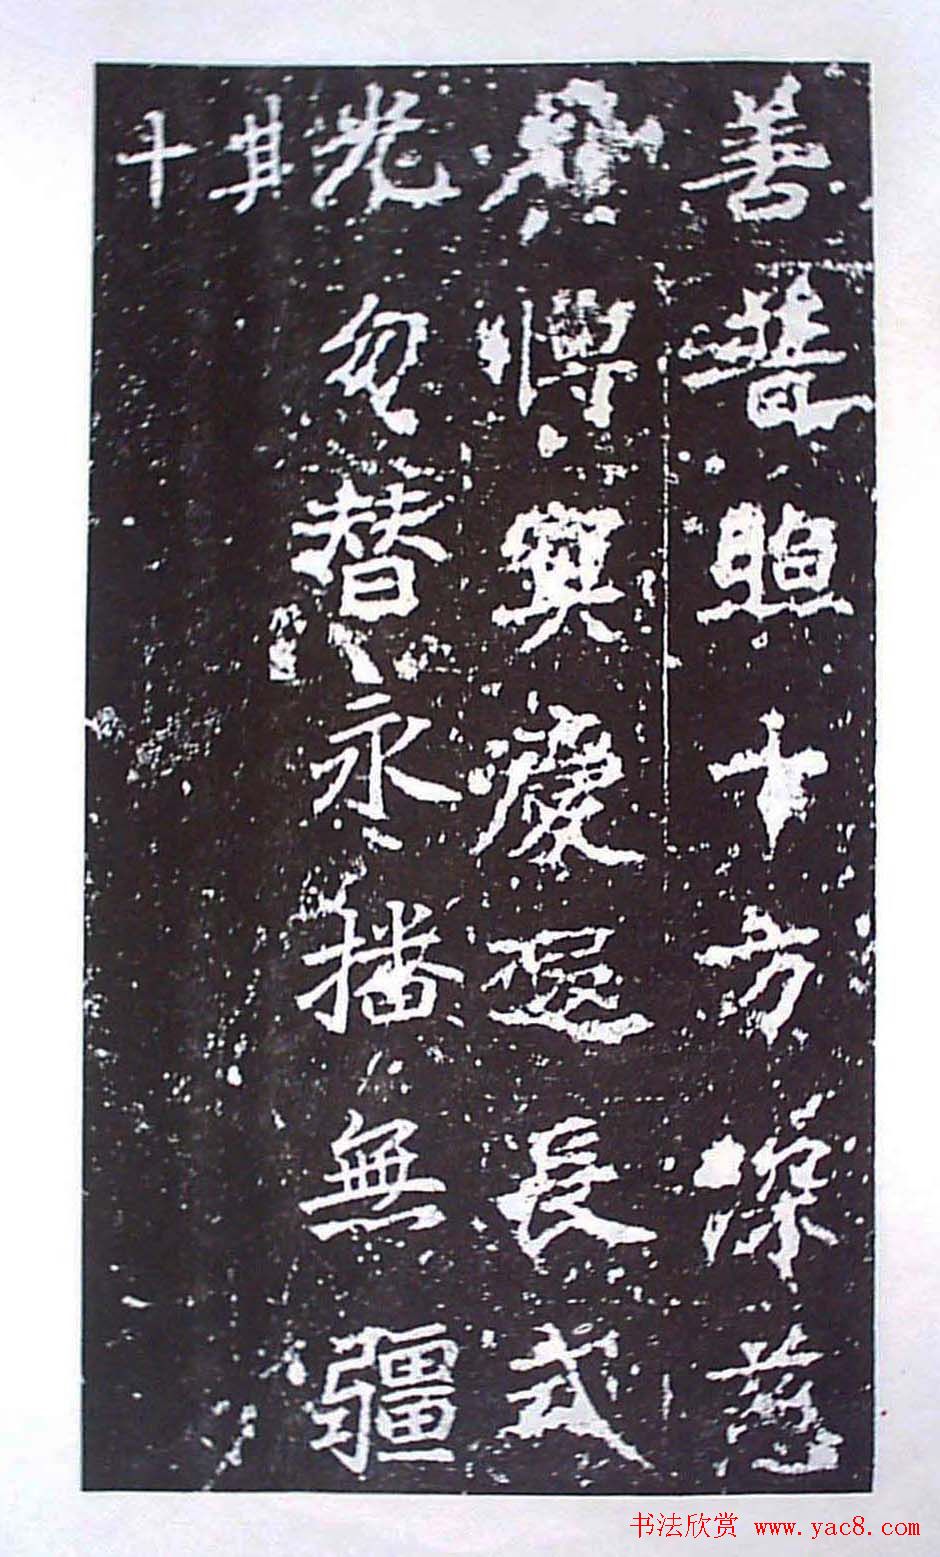 善普照十方深慈
愽冥慶遐長式
光勿替永播無疆
其
十
书法欣赏 www.yac8.com